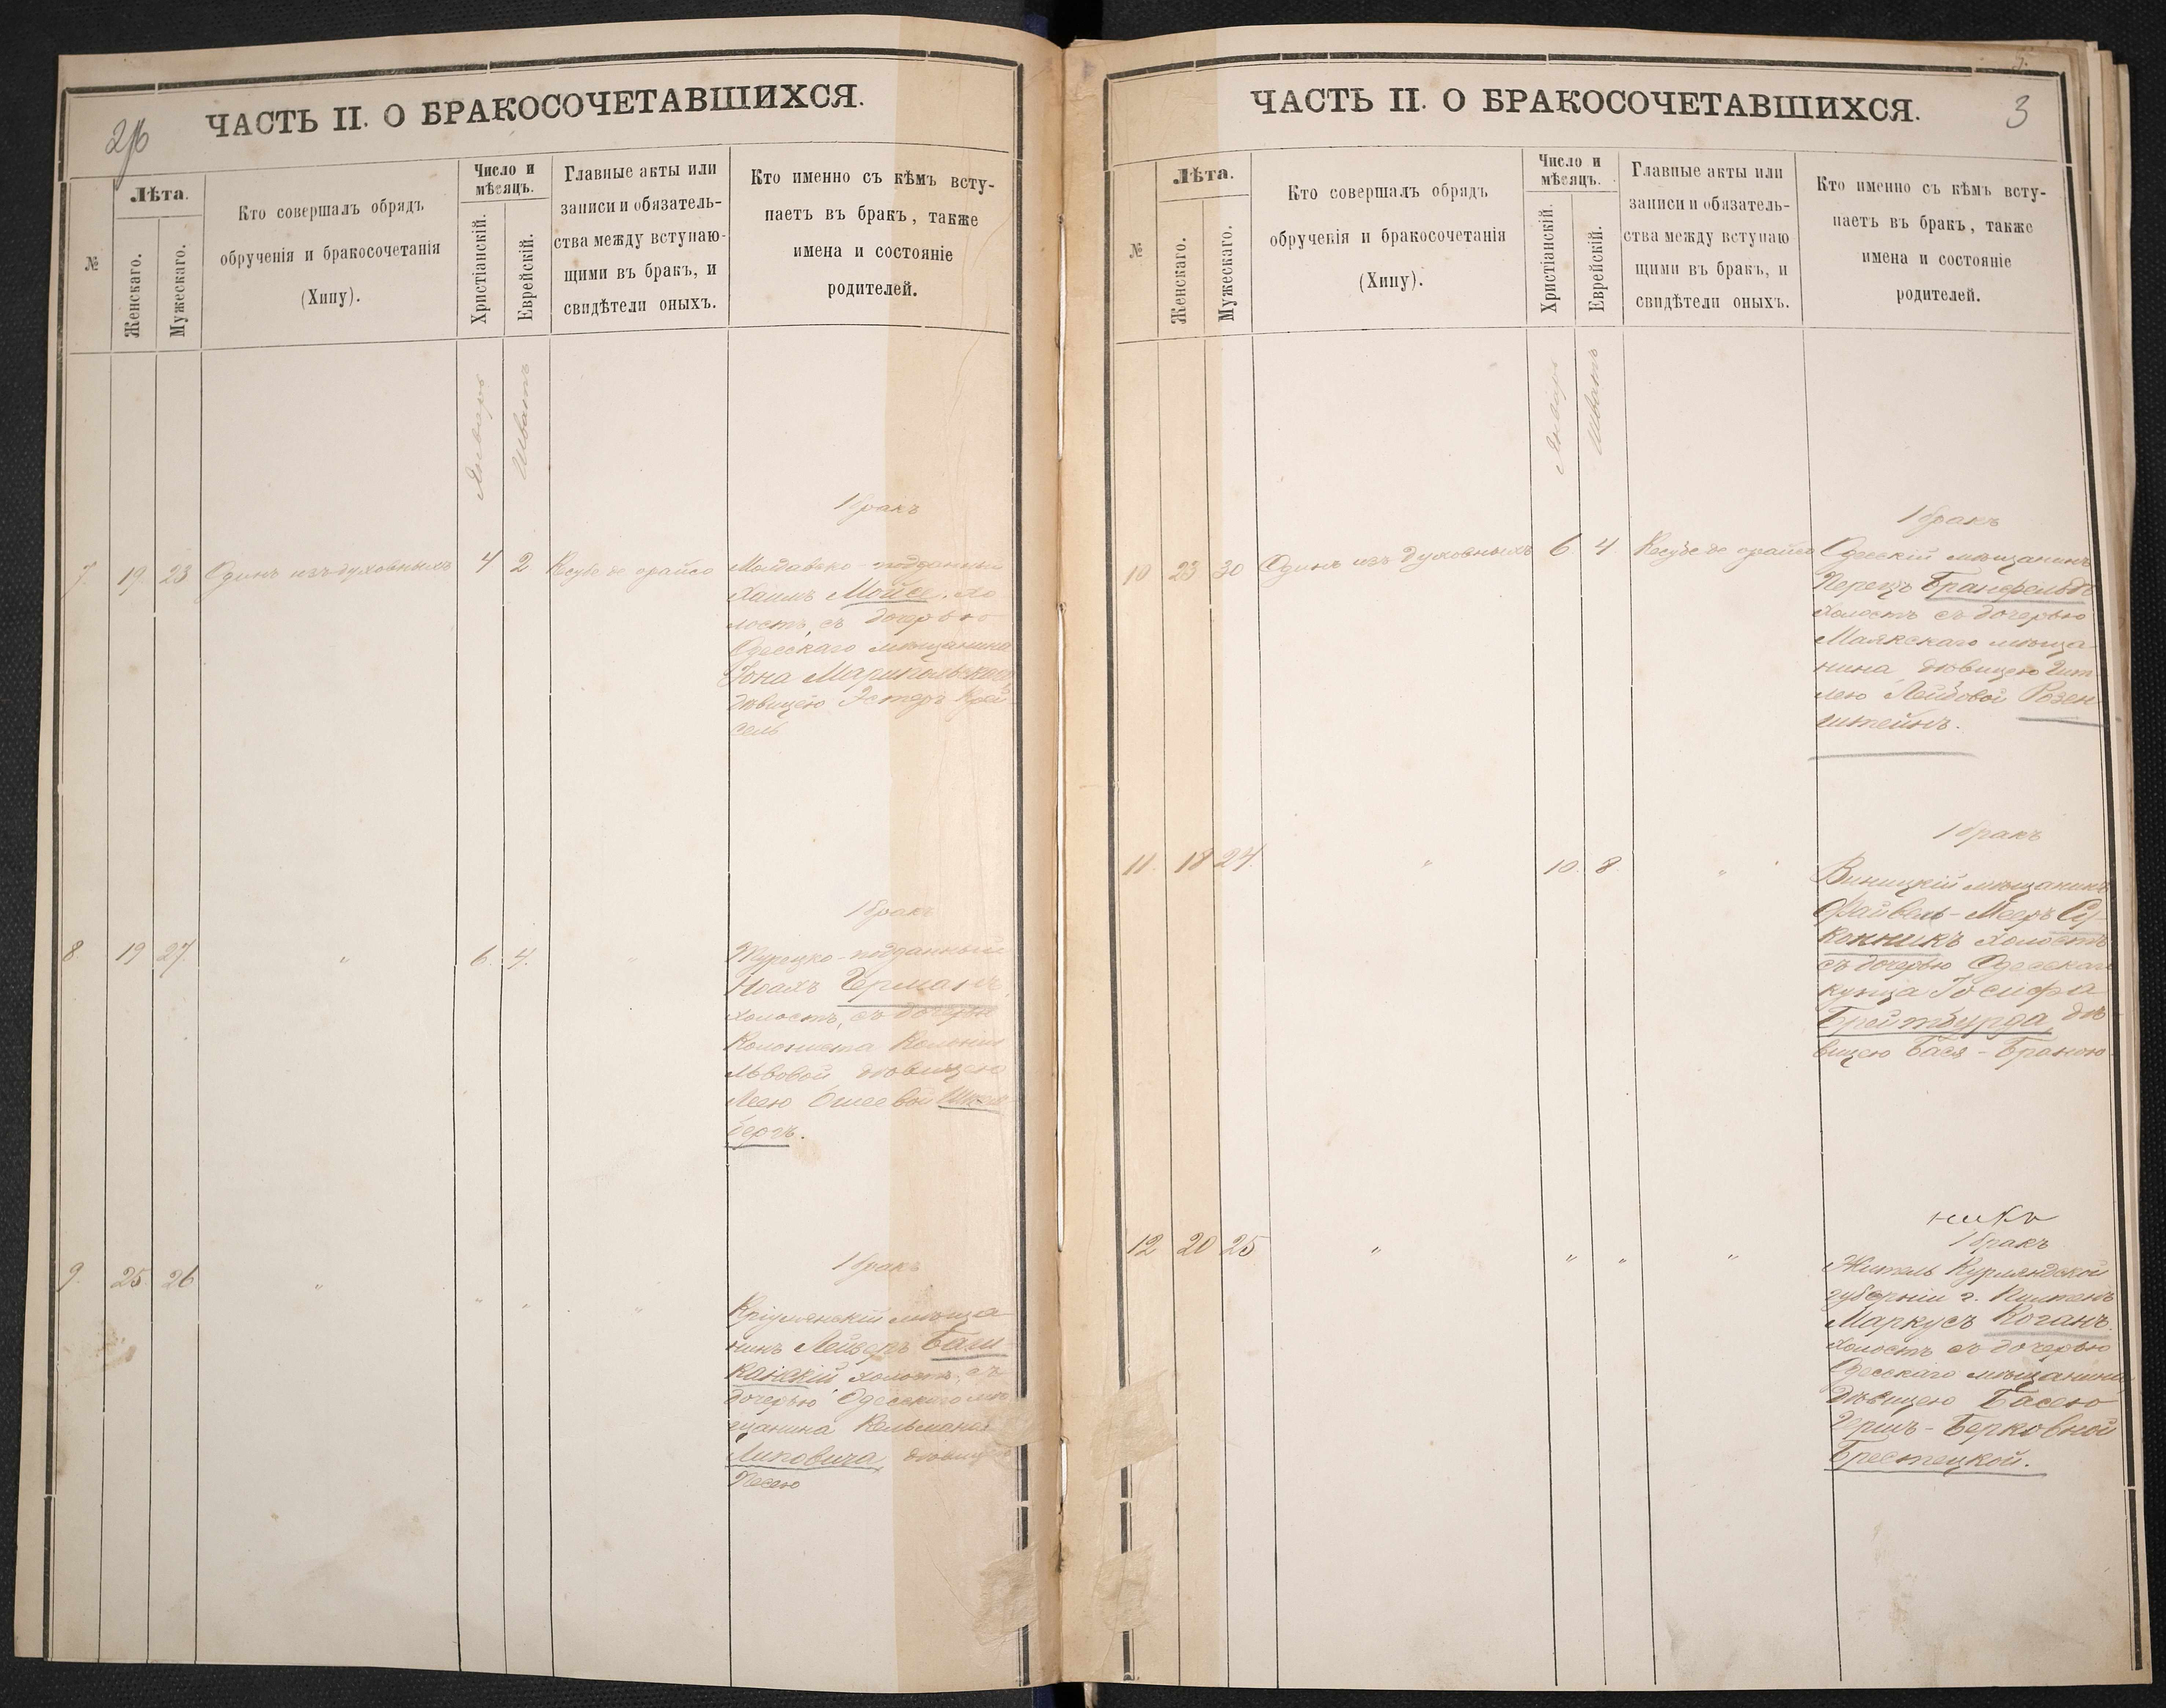 2/б
ЧАСТЬ II. О БРАКОСОЧЕТАВШИХСЯ.
№
Лѣта.
Женскаго.
Мужескаго.
Кто совершалъ обрядъ
обрученія и бракосочетанія
(Хипу).
Число и
мѣсяцъ.
Христіанскій.
Еврейскій.
Главные акты или
записи и обязатель-
ства между вступаю-
щими въ бракъ, и
свидѣтели оныхъ.
Кто именно съ кѣмъ всту-
паетъ въ бракъ, также
имена и состояніе
родителей.
Январь
Шватъ
1 бракъ
7. 19. 23 Одинъ изъ духовныхъ 4 2. Ксубе де орайсо Молдавско-подданный
Хаимъ Мойсе, хо
лостъ, съ дочерью
Одесскаго мѣщанина
Іона Марикольскаго
дѣвицею Эстеръ Крей
сель
1 бракъ
8 19 27. " 6. 4. " Турецко-подданный
Ноахъ Германъ,
холостъ, съ дочерью
Колониста Колоніи
Львовой дѣвицею
Леею Ошеевой
бергъ.
1 бракъ
9. 25. 26 " " " " Кріулянскій мѣща
нинъ Лейзеръ Баш-
канскій холостъ, съ
дочерью Одесскаго мѣ
щанина Кельмана
Липовича, дѣвиц
Песею
3
ЧАСТЬ II. О БРАКОСОЧЕТАВШИХСЯ.
№
Лѣта.
Женскаго.
Мужескаго.
Кто совершалъ обрядъ
обрученія и бракосочетанія
(Хипу).
Число и
мѣсяцъ.
Христіанскій.
Еврейскій.
Главные акты или
записи и обязатель-
ства между вступаю
щими въ бракъ, и
свидѣтели оныхъ.
Кто именно съ кѣмъ всту-
паетъ въ бракъ, также
имена и состояніе
родителей.
Январь
Шватъ
1 бракъ
10 23 30 Одинъ изъ духовныхъ 6. 4. Ксубе де орайсо Одесскій мѣщанинъ
Перецъ Бранфельдъ
холостъ съ дочерью
Маякскаго мѣща-
нина, дѣвицею Гит
лею Лейбовой Розен
штейнъ.
1 бракъ
11. 18 24. " 10. 8. " Виницкій мѣщанинъ
Файвель-Мееръ Су-
конникъ холостъ
съ дочерью Одесскаго
купца Іосифа
Брейтбурда, дѣ-
вицею Бася-Браною
никъ
1 бракъ
12 20 25 " " " " Житель Курляндской
губерніи г. Пилтенъ
Маркусъ Коганъ.
холостъ съ дочерью
Одесскаго мѣщанина
дѣвицею Басею
Гершъ-Берковной
Брестецкой.